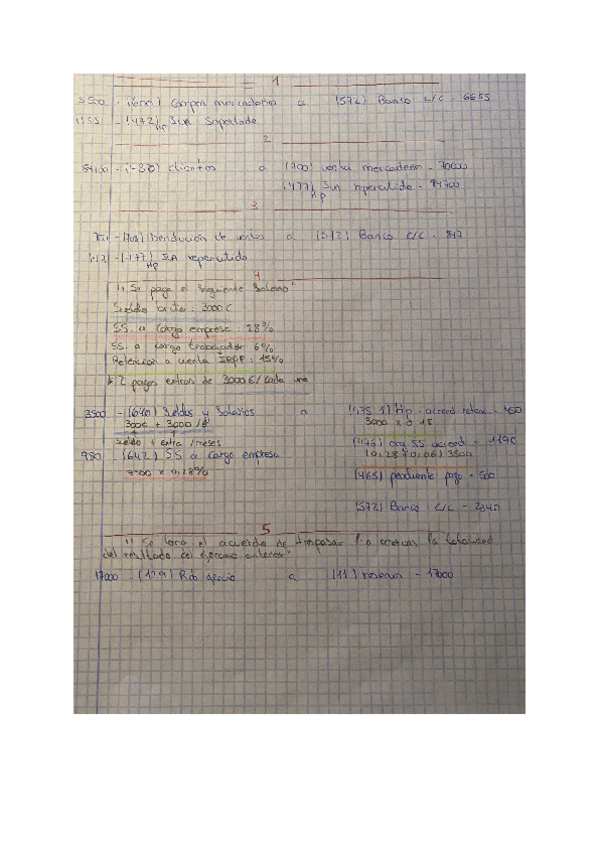 1
(600) Compra mercaderías a (572) Banco c/c - 6655
1155 - (472) HP IVA Soportado
2
clientes a (700) venta mercaderías - 70000
(477) HP IVA repercutido - 14700
3
(708) Devolución de ventas a (572) Banco c/c - 847
(477) HP IVA repercutido
4
"Se paga el siguiente salario"
Sueldo bruto: 3000€
SS. a cargo empresa: 28%
SS. a cargo trabajador 6%
Retención a cuenta IRPF: 15%
* 2 pagas extras de 3000€/cada una
3500 - (640) Sueldos y Salarios a (4751) Hp. acreed. reten. - 450
3000 + 3000/6 3000 x 0'15
Sueldo + extra/meses (476) org. SS acreed - 1190
980 - (642) SS a cargo empresa (0,28+0,06) 3500
3500 x 0,28%
(465) pendiente pago - 500
(572) Banco c/c - 2340
5
"Se toma el acuerdo de traspasar a reservas la totalidad
del resultado del ejercicio anterior"
17000 - (129) Rdo ejercicio a (11) reservas - 17000